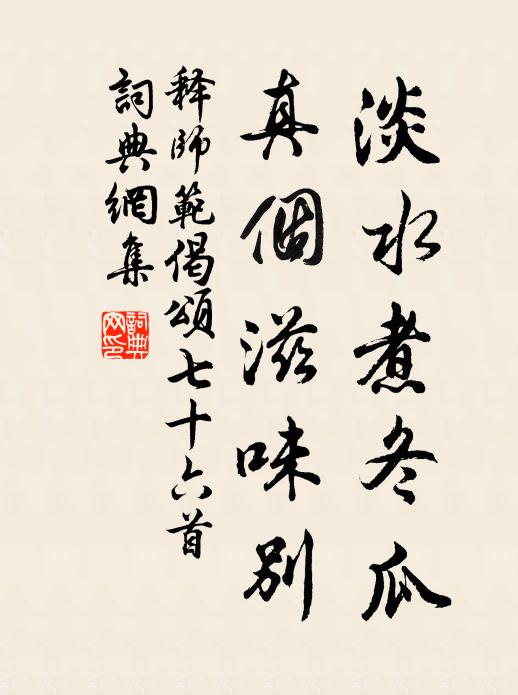 淡水煮冬瓜
真個滋味别
释師範偈頌七十六首
詞典網集
詞典网印